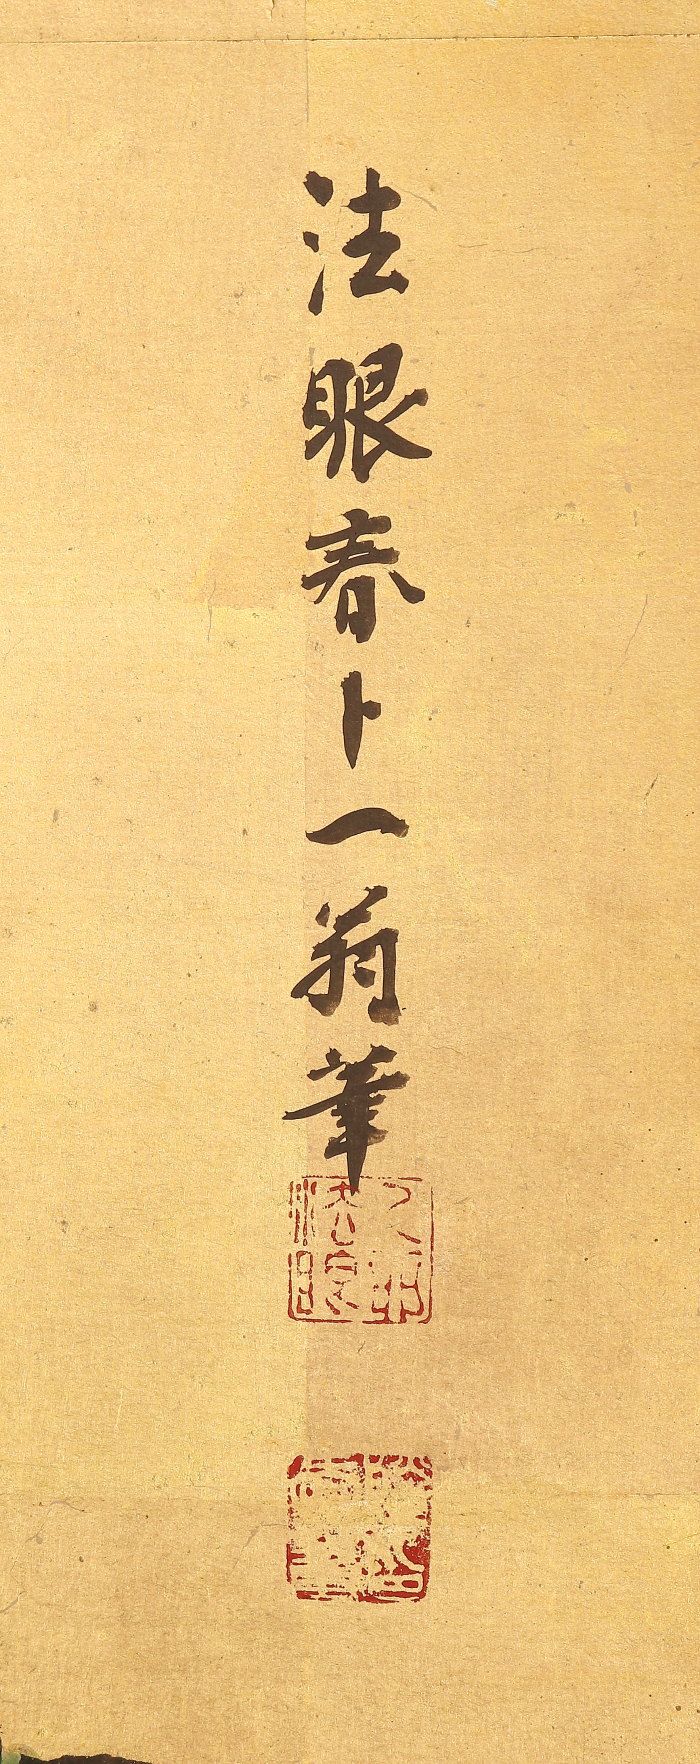 法眼春卜一翁筆